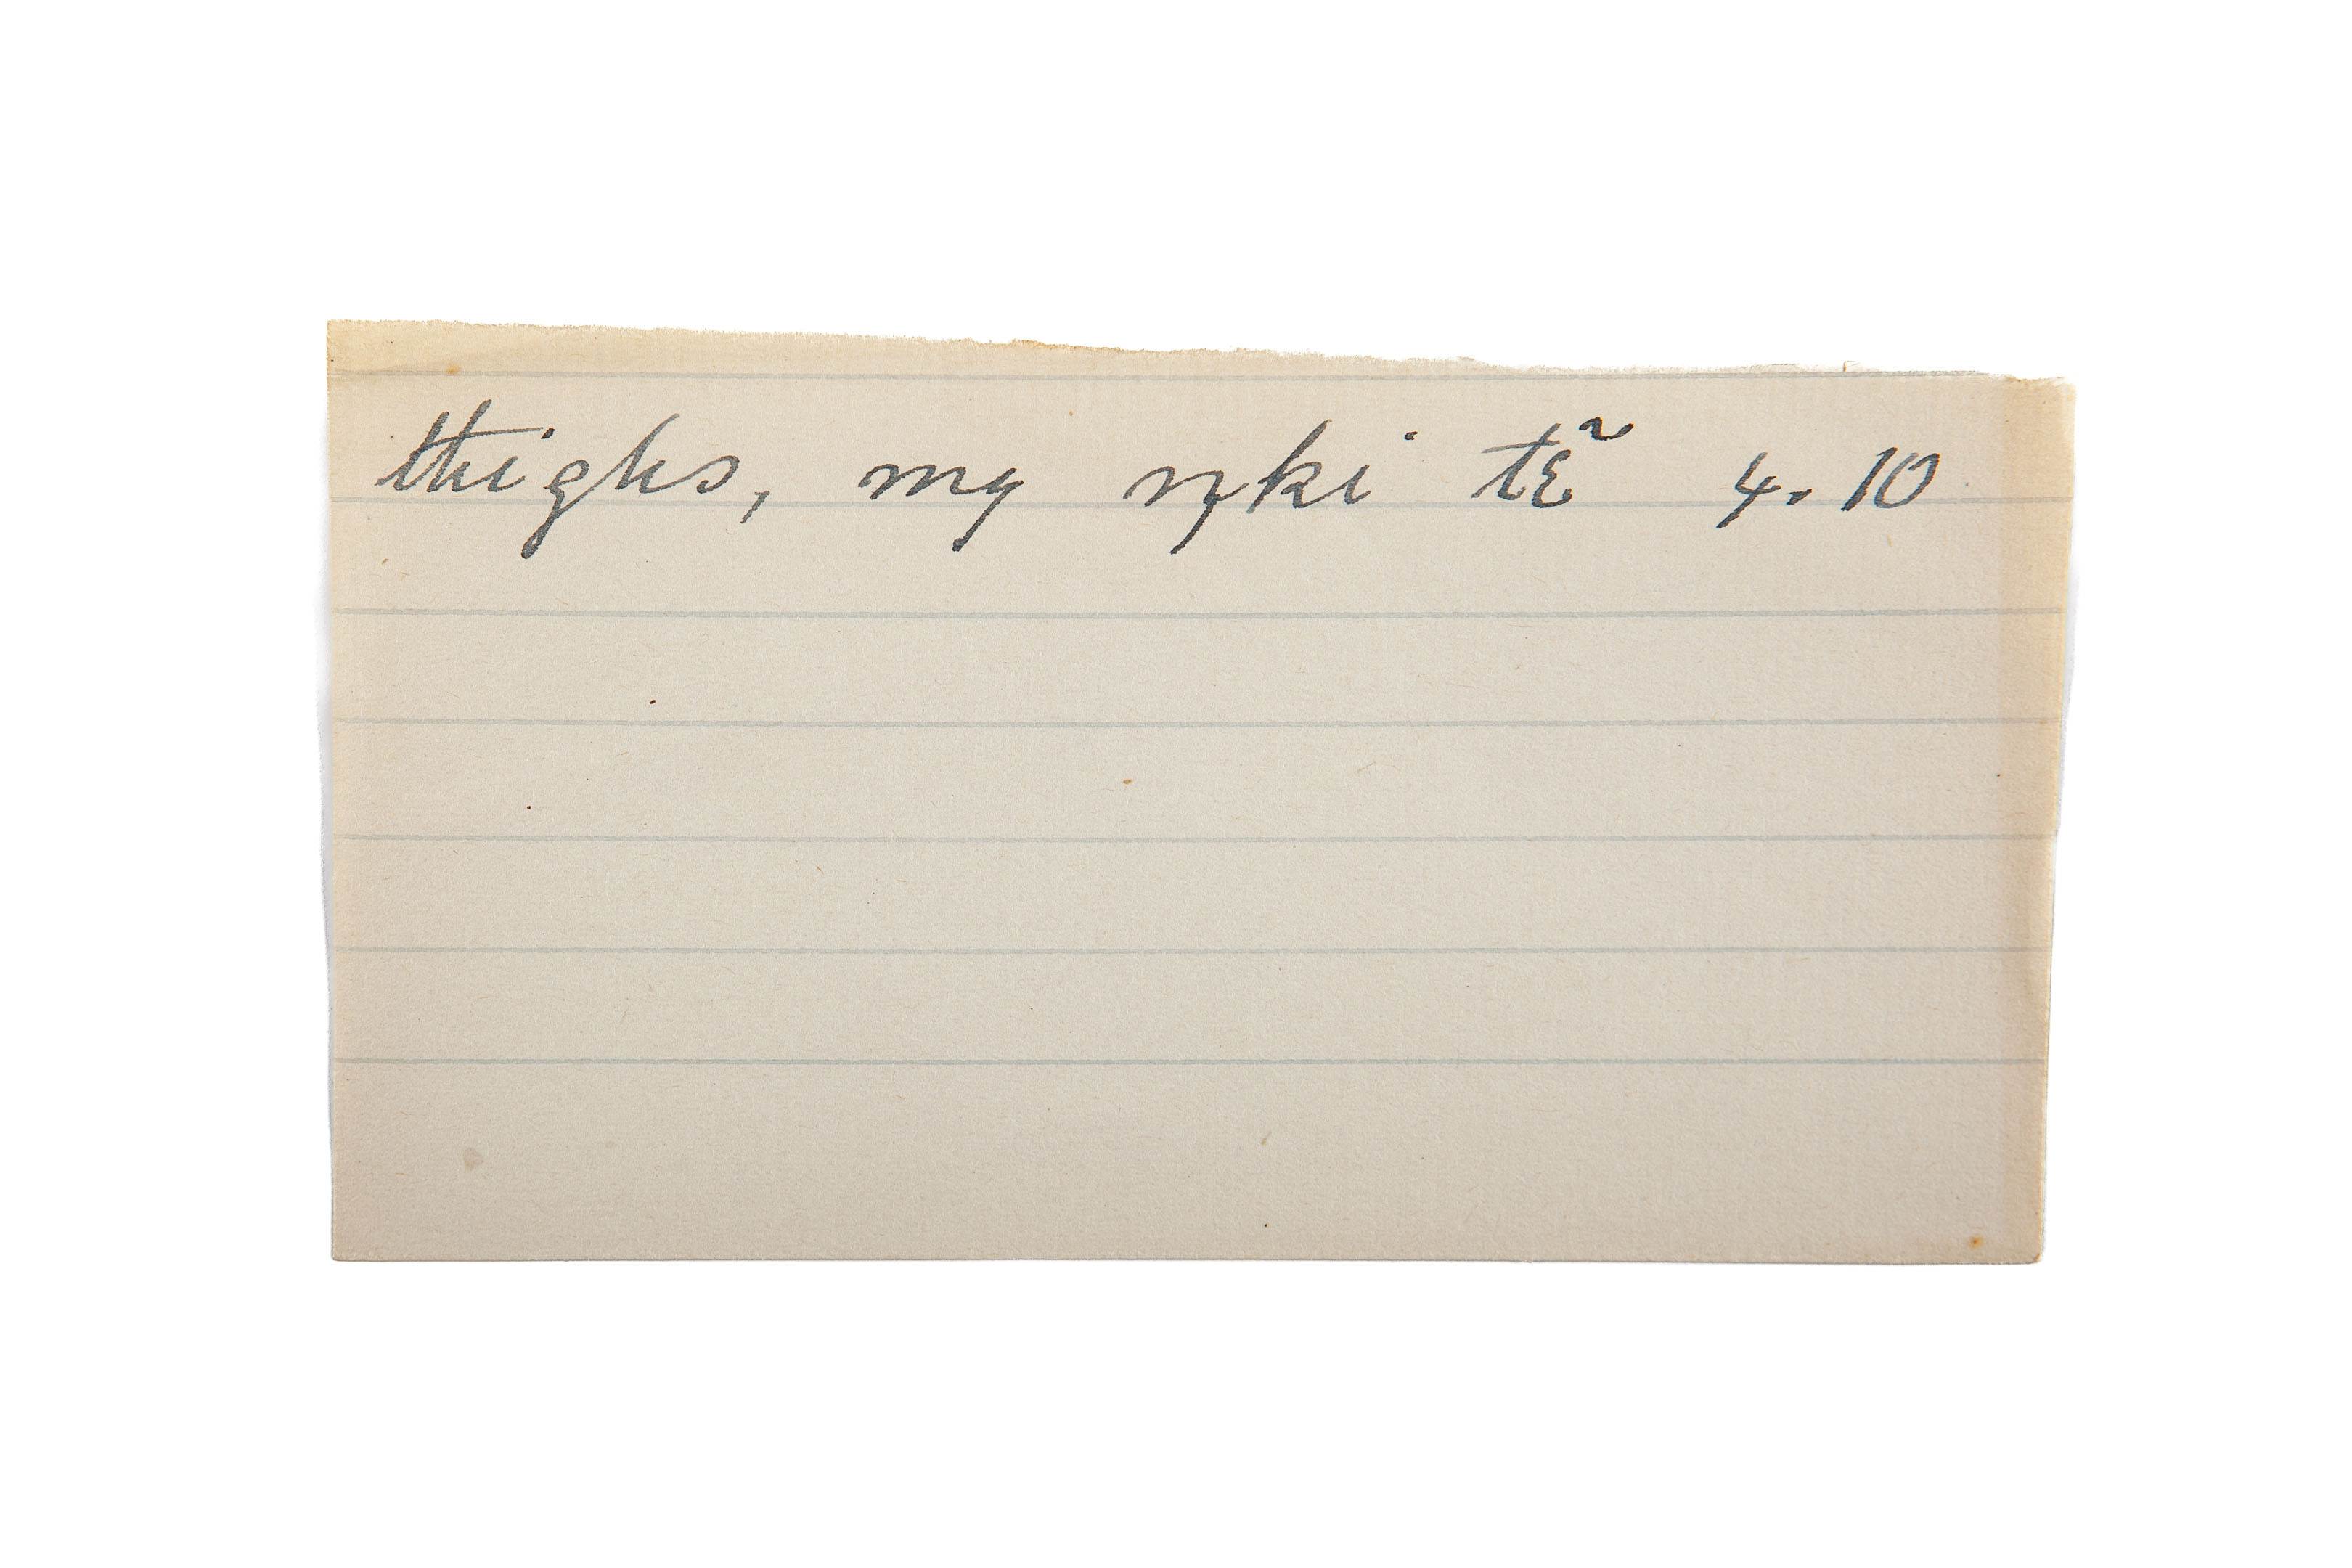 thighs, my ŋki tɛ̃ 4.10